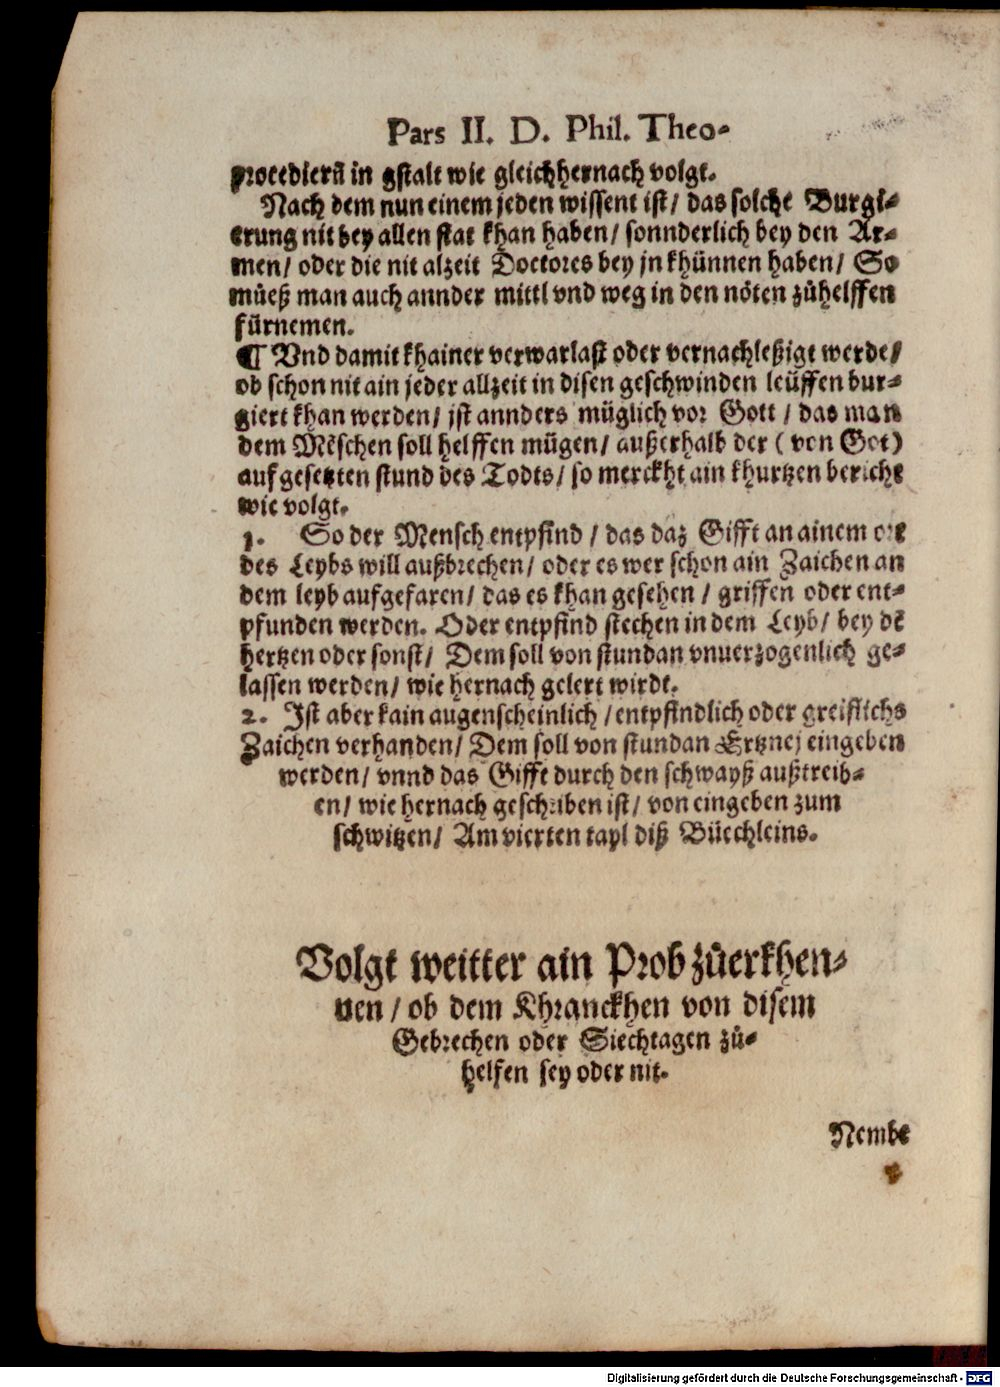 Pars II. D. Phil. Theo-
procedierñ in gstalt wie gleich hernach volgt.
Nach dem nun einem jeden wissent ist/ das solche Burgi-
erung nit bey allen stat khan haben/ sonnderlich bey den Ar-
men/ oder die nit alzeit Doctores bey jn khünnen haben/ So
müeß man auch annder mittl vnd weg in den nöten zůhelffen
fürnemen.
¶ Vnd damit khainer verwarlast oder vernachleßigt werde/
ob schon nit ain jeder allzeit in disen geschwinden leüffen bur-
giert khan werden/ jst annders müglich vor Gott / das man
dem Mēschen soll helffen mügen/ außerhalb der ( von Got)
aufgesetzten stund des Todts/ so merckht ain khurtzen bericht
wie volgt.
1. So der Mensch entpfind / das daz Gifft an ainem ort
des Leybs will außbrechen/ oder es wer schon ain Zaichen an
dem leyb aufgefaren/ das es khan gesehen / griffen oder ent-
pfunden werden. Oder entpfind stechen in dem Leyb/ bey dē
hertzen oder sonst/ Dem soll von stundan vnuerzogenlich ge-
lassen werden/ wie hernach gelert wirdt.
2. Jst aber kain augenscheinlich / entpfindlich oder greiflichs
Zaichen verhanden/ Dem soll von stundan Ertznej eingeben
werden/ vnnd das Gifft durch den schwayß außtreib-
en/ wie hernach geschriben ist/ von eingeben zum
schwitzen/ Am vierten tayl diß Büechleins.
Volgt weitter ain Prob zůerkhen-
nen / ob dem Khranckhen von disem
Gebrechen oder Siechtagen zů-
helfen sey oder nit.
Nembt
Digitalisierung gefördert durch die Deutsche Forschungsgemeinschaft - DFG